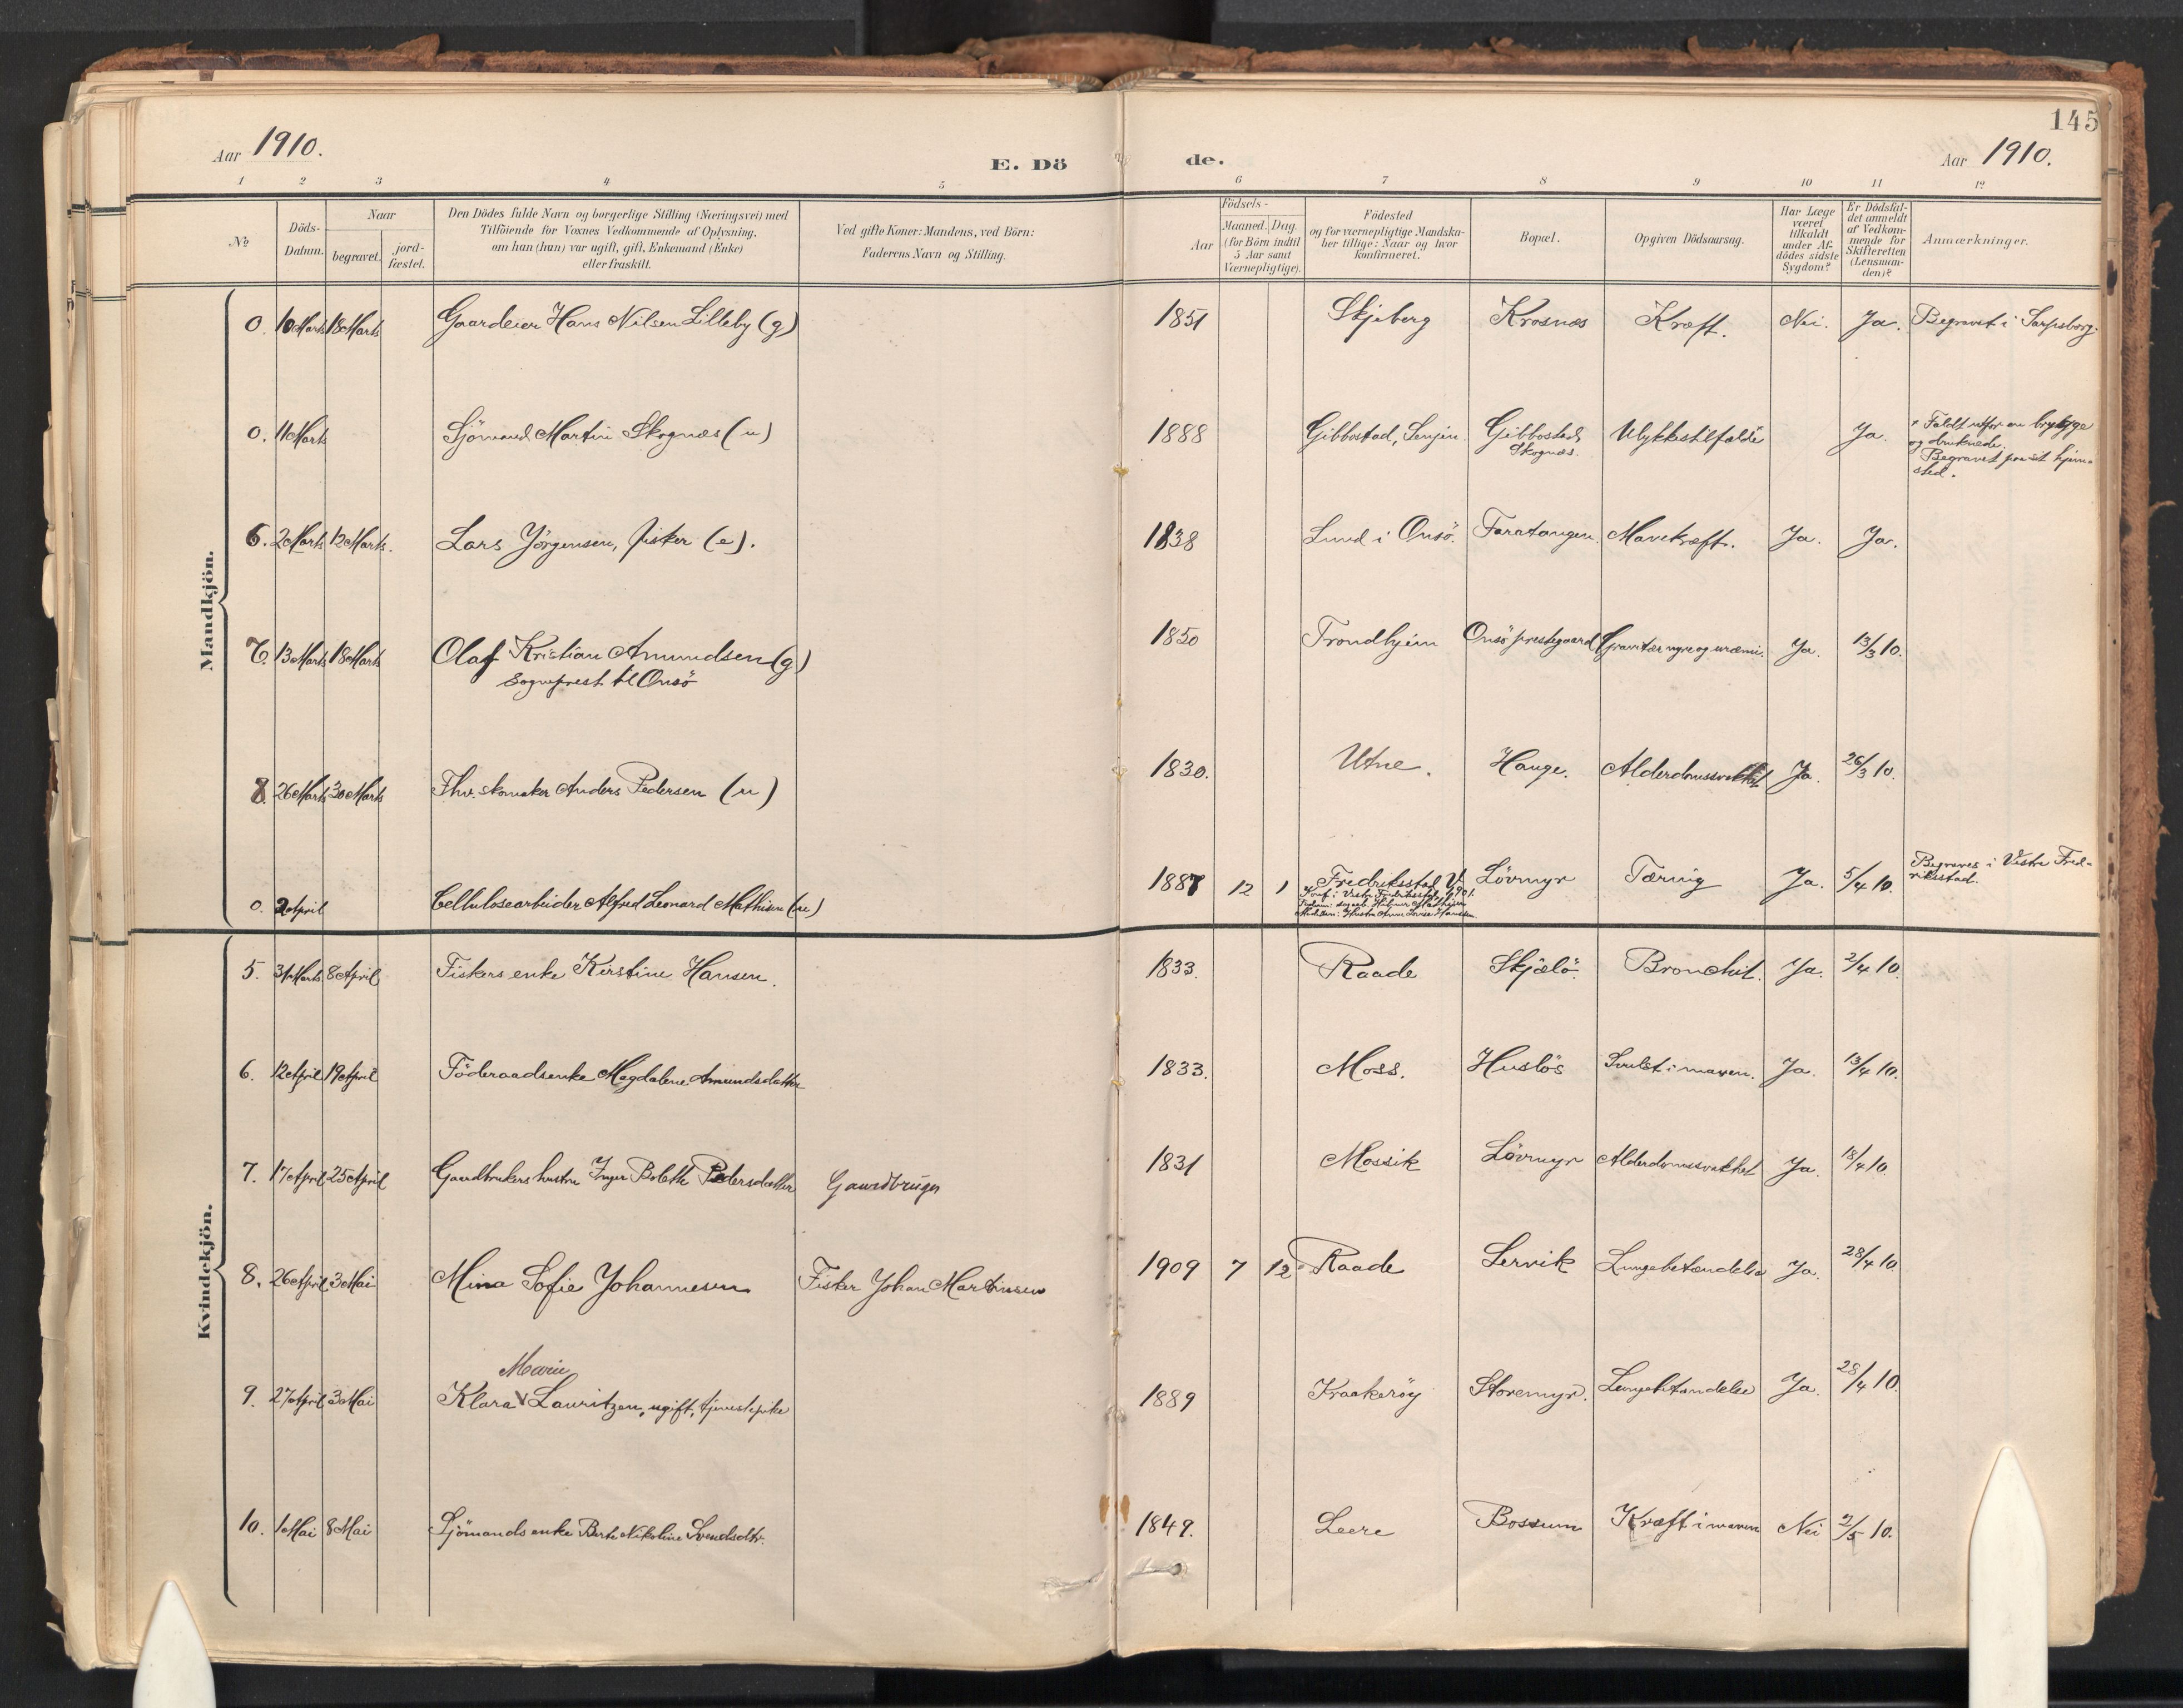 145
Aar 1910.
E. Dö
de.
Aar 1910.
1 2 3 4 5 6 7 8 9 10 11 12
No
Döds-
Datum.
Naar
begravet.
jord-
fæstet.
Den Dödes fulde Navn og borgerlige Stilling (Næringsvei) med
Tilföiende for Voxnes Vedkommende af Oplysning,
om han (hun) var ugift, gift, Enkemand (Enke)
eller fraskilt.
Ved gifte Koner: Mandens, ved Börn:
Faderens Navn og Stilling.
Födsels-
Aar
Maaned. Dag.
(for Börn indtil
5 Aar samt
Værnepligtige).
Födested
og for værnepligtige Mandska-
ber tillige: Naar og hvor
konfirmeret.
Bopæl.
Opgiven Dödsaarsag.
Har Læge
været
tilkaldt
under Af-
dödes sidste
Sygdom?
Er Dödsfal-
det anmeldt
af Vedkom-
mende for
Skifteretten
(Lensman-
den)?
Anmærkninger.
Mandkjön.
0. 10 Marts 18 Marts Gaardeier Hans Nilsen Lilleby (g) 1851 Skjeberg Krosnæs Kræft. Nei. Ja. Begravet i Sarpsborg.
0. 11 Marts Sjömand Martin Skognæs (u) 1888 Gibbostad, Senjen. Gibbostad, Ulykkestilfælde Ja. Faldt utfor en brygge
Skognæs. og druknede.
Begravet paa sit hjem-
sted.
6. 2 Marts 12 Marts. Lars Jörgensen, fisker (e). 1838 Lund i Onsö. Faratangen. Mavekræft. Ja. Ja.
7. 13 Marts 18 Marts Olaf Kristian Amundsen (g) 1850 Trondhjem Onsö prestegaard nyre og uræmi. Ja. 13/3 10.
Sogneprest til Onsö
8. 26 Marts 30 Marts Fhv. skomaker Anders Pedersen (u) 1830. Utne. Hauge. Alderdomssvakhet Ja. 26/3 10.
0. 2 April Cellulosearbeider Alfred Leonard Mathisen (u) 1887 12 1 Fredriksstad V. Lövmyr Tæring Ja. 5/4 10. Begraves i Vestre Fred-
riksstad.
Konf. i Vestre Fredriksstad 1902.
Kvindekjön.
5. 31 Marts 8 April Fiskers enke Kirstine Hansen. 1833. Raade Skjælö. Bronchit. Ja. 2/4 10.
6. 12 April 19 April Föderaadsenke Magdalene Amundsdatter 1833. Moss. Huslös Svulst i maven. Ja. 13/4 10.
7. 17 April 25 April Gaardbrukers hustru Inger Bolette Pedersdatter Gaardbruger 1831 Mossik Lövmyr Alderdomssvakhet Ja. 18/4 10.
8. 26 April 3 Mai Mina Sofie Johannesen Fisker Johan Martinsen 1909 7 12 Raade Lervik Lungebetændelse Ja. 28/4 10.
Marie
9. 27 April 3 Mai Klara Lauritzen, ugift, tjenestepike 1889 Kraakeröy Storemyr. Lungebetændelse Ja. 28/4 10.
10. 1 Mai 8 Mai Sjömands enke Berte Nikoline Svendsdtr. 1849. Leere Bossum Kræft i maven Nei 2/5 10.